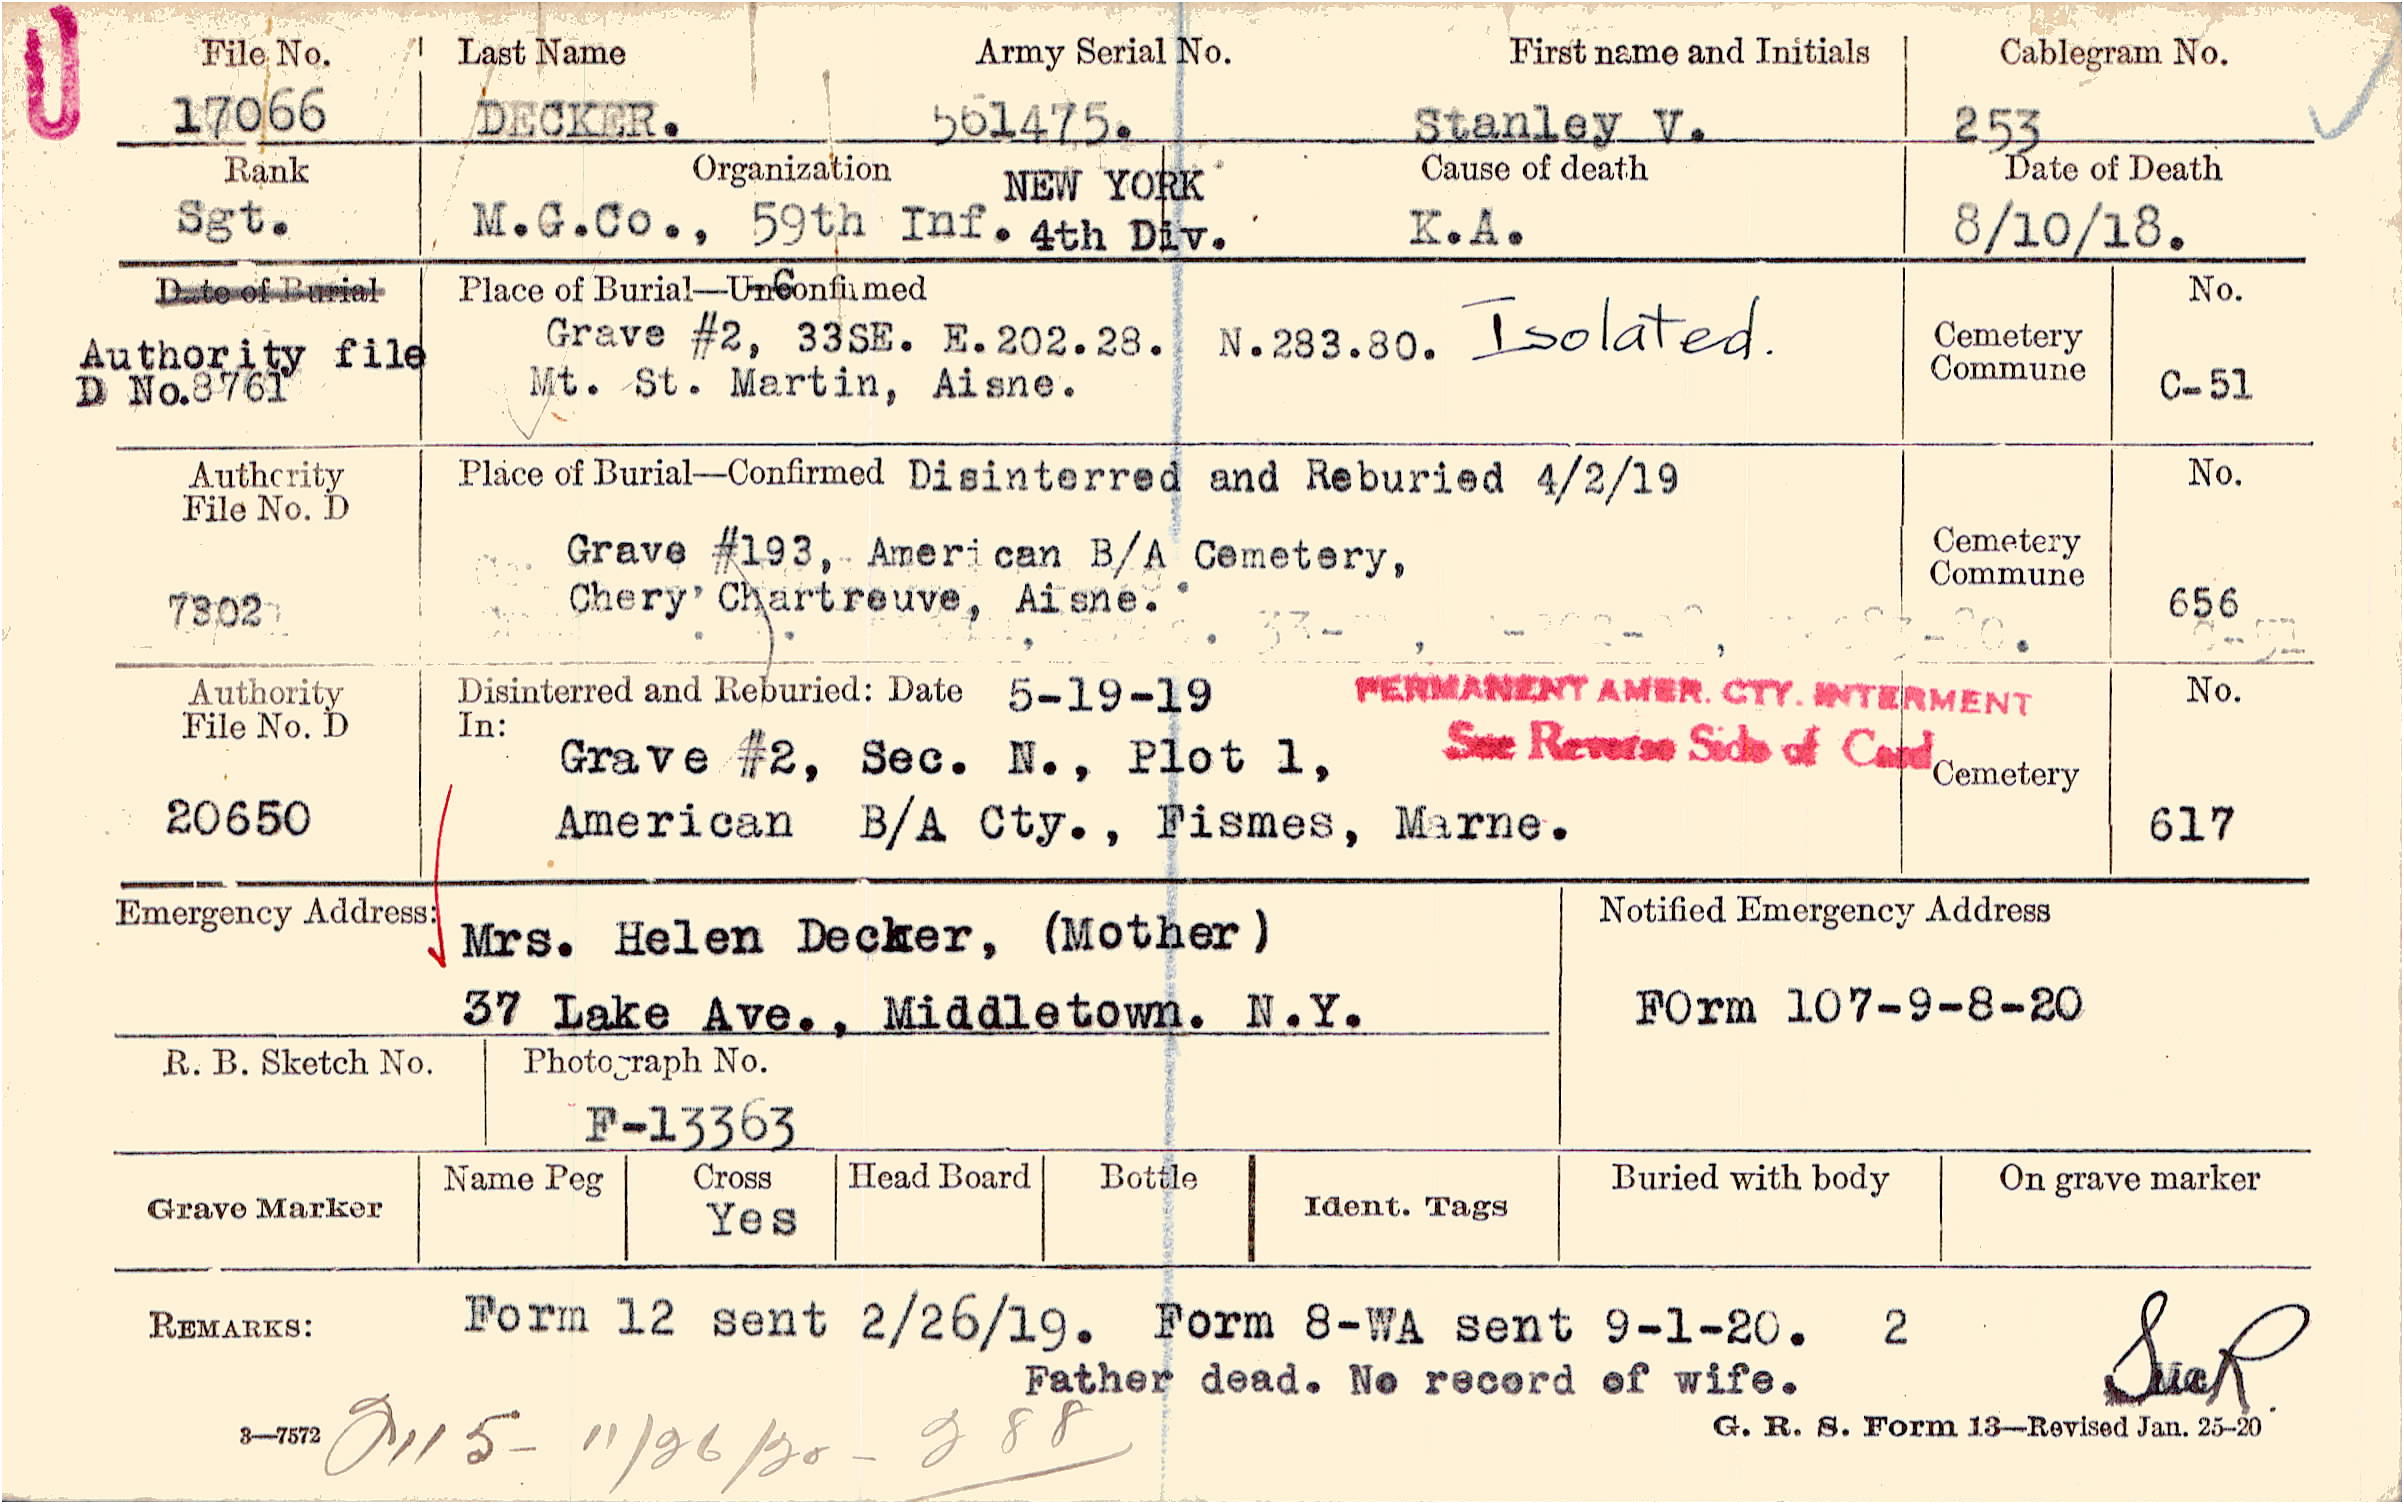 U
File No. Last Name Army Serial No. First name and Initials Cablegram No.
17066 DECKER. 561475. Stanley V. 253
Rank Organization Cause of death Date of Death
NEW YORK
Sgt. M.G.Co., 59th Inf. 4th Div. K.A. 8/10/18.
Date of Burial Place of Burial—UnConfirmed No.
Grave #2, 33SE. E.202.28. N.283.80. Isolated.
Authority file Mt. St. Martin, Aisne. Cemetery
D No.8761 Commune C-51
Authority Place of Burial—Confirmed Disinterred and Reburied 4/2/19 No.
File No. D
Grave #193, American B/A Cemetery, Cemetery
Chery Chartreuve, Aisne. Commune
7302 656
Authority Disinterred and Reburied: Date 5-19-19 PERMANENT AMER. CTY. INTERMENT No.
File No. D In: See Reverse Side of Card
Grave #2, Sec. N., Plot 1, Cemetery
20650 American B/A Cty., Fismes, Marne. 617
Emergency Address: Mrs. Helen Decker, (Mother) Notified Emergency Address
37 Lake Ave., Middletown. N.Y. FOrm 107-9-8-20
R. B. Sketch No. Photograph No.
F-13363
Grave Marker Name Peg Cross Head Board Bottle Ident. Tags Buried with body On grave marker
Yes
REMARKS: Form 12 sent 2/26/19. Form 8-WA sent 9-1-20. 2
Father dead. No record of wife.
3—7572 11/26/20 - G. R. S. Form 13—Revised Jan. 25-20